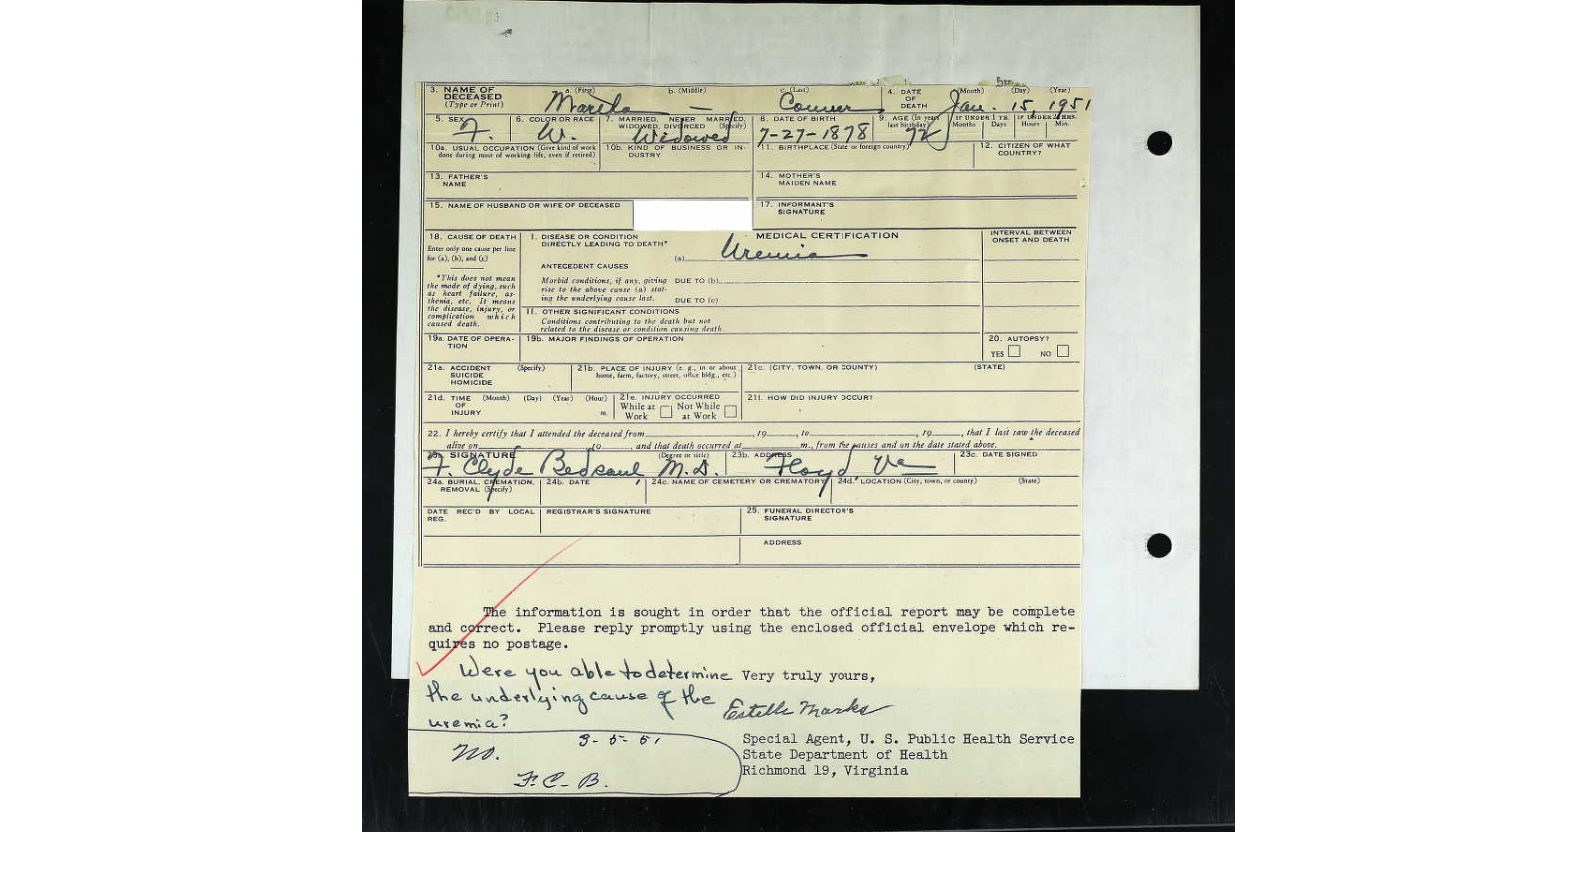 3. NAME OF DECEASED (Type or Print) a. (First) Martha b. (Middle) — c. (Last) Conner 4. DATE OF DEATH (Month) (Day) (Year) Jan. 15, 1951
5. SEX F. 6. COLOR OR RACE W. 7. MARRIED, NEVER MARRIED, WIDOWED, DIVORCED (Specify) Widowed 8. DATE OF BIRTH 7-27-1878 9. AGE (In years last birthday) 72 IF UNDER 1 YR. Months Days IF UNDER 24 HRS. Hours Min.
10a. USUAL OCCUPATION (Give kind of work done during most of working life, even if retired) 10b. KIND OF BUSINESS OR INDUSTRY 11. BIRTHPLACE (State or foreign country) 12. CITIZEN OF WHAT COUNTRY?
13. FATHER'S NAME 14. MOTHER'S MAIDEN NAME
15. NAME OF HUSBAND OR WIFE OF DECEASED 17. INFORMANT'S SIGNATURE
18. CAUSE OF DEATH
Enter only one cause per line for (a), (b), and (c)
*This does not mean the mode of dying, such as heart failure, asthenia, etc. It means the disease, injury, or complication which caused death.
MEDICAL CERTIFICATION
INTERVAL BETWEEN ONSET AND DEATH
I. DISEASE OR CONDITION DIRECTLY LEADING TO DEATH* (a) Uremia
ANTECEDENT CAUSES
Morbid conditions, if any, giving rise to the above cause (a) stating the underlying cause last.
DUE TO (b)
DUE TO (c)
II. OTHER SIGNIFICANT CONDITIONS
Conditions contributing to the death but not related to the disease or condition causing death.
19a. DATE OF OPERATION 19b. MAJOR FINDINGS OF OPERATION 20. AUTOPSY? YES NO
21a. ACCIDENT SUICIDE HOMICIDE (Specify) 21b. PLACE OF INJURY (e. g., in or about home, farm, factory, street, office bldg., etc.) 21c. (CITY, TOWN, OR COUNTY) (STATE)
21d. TIME OF INJURY (Month) (Day) (Year) (Hour) m. 21e. INJURY OCCURRED While at Work Not While at Work 21f. HOW DID INJURY OCCUR?
22. I hereby certify that I attended the deceased from , 19 , to , 19 , that I last saw the deceased
alive on , 19 , and that death occurred at m., from the causes and on the date stated above.
23a. SIGNATURE F. Clyde Bedsaul, M.D. (Degree or title) 23b. ADDRESS Floyd, Va 23c. DATE SIGNED
24a. BURIAL, CREMATION, REMOVAL (Specify) 24b. DATE 24c. NAME OF CEMETERY OR CREMATORY 24d. LOCATION (City, town, or county) (State)
DATE REC'D BY LOCAL REG. REGISTRAR'S SIGNATURE 25. FUNERAL DIRECTOR'S SIGNATURE
ADDRESS
The information is sought in order that the official report may be complete
and correct. Please reply promptly using the enclosed official envelope which re-
quires no postage.
Were you able to determine
the underlying cause of the
uremia?
Very truly yours,
Estelle Marks
Special Agent, U. S. Public Health Service
State Department of Health
Richmond 19, Virginia
3-5-51
No.
F.C.B.